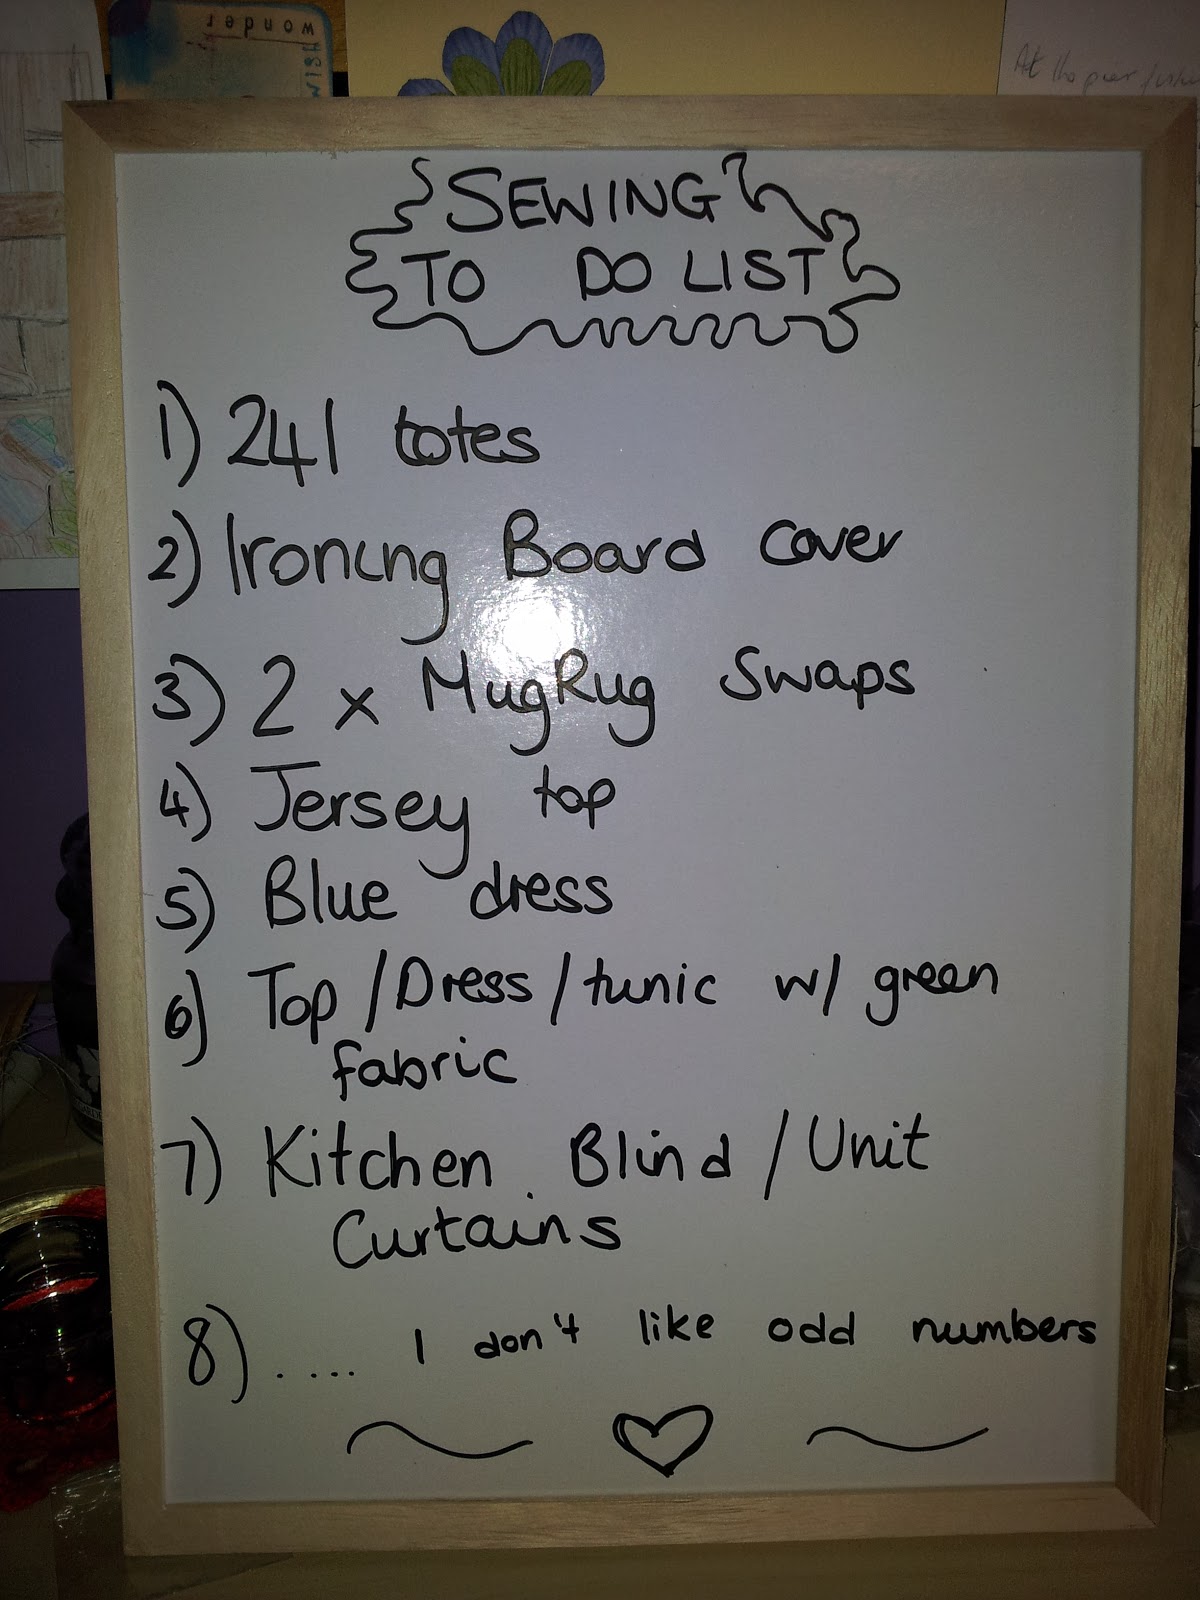 wonder
WISH
At the pier
SEWING
TO DO LIST
1) 241 totes
2) Ironing Board cover
3) 2 x MugRug Swaps
4) Jersey top
5) Blue dress
6) Top/Dress/tunic w/ green
fabric
7) Kitchen Blind/Unit
Curtains
8) ..... I don't like odd numbers